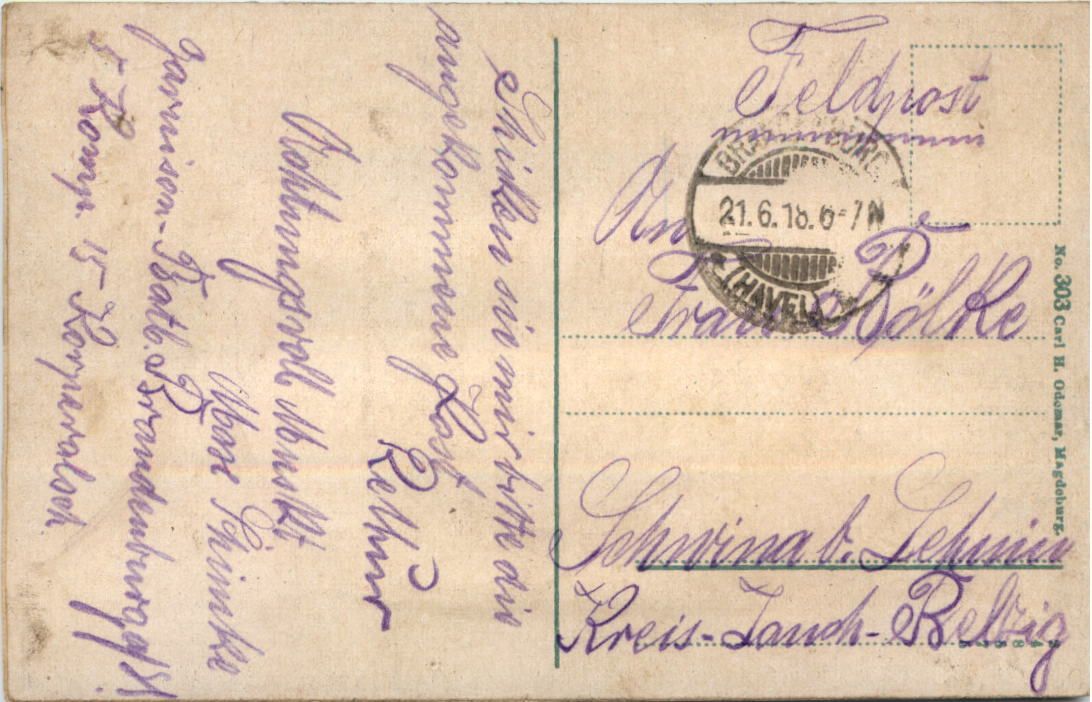 Feldpost
BRANDENBURG
21.6.18. 6-7 N
(HAVEL)
An
Frau Bölke
Schwina b. Lehnin
Kreis-Zauch-Belzig
No. 303 Carl H. Odemar, Magdeburg.
Schicken sie mir bitte die
angekommene Post
Rethür
Achtungsvoll Muskt
Max Schimke
Garnison-Batl. Brandenburg a/H
5 Komp. 15 Korperalsch.